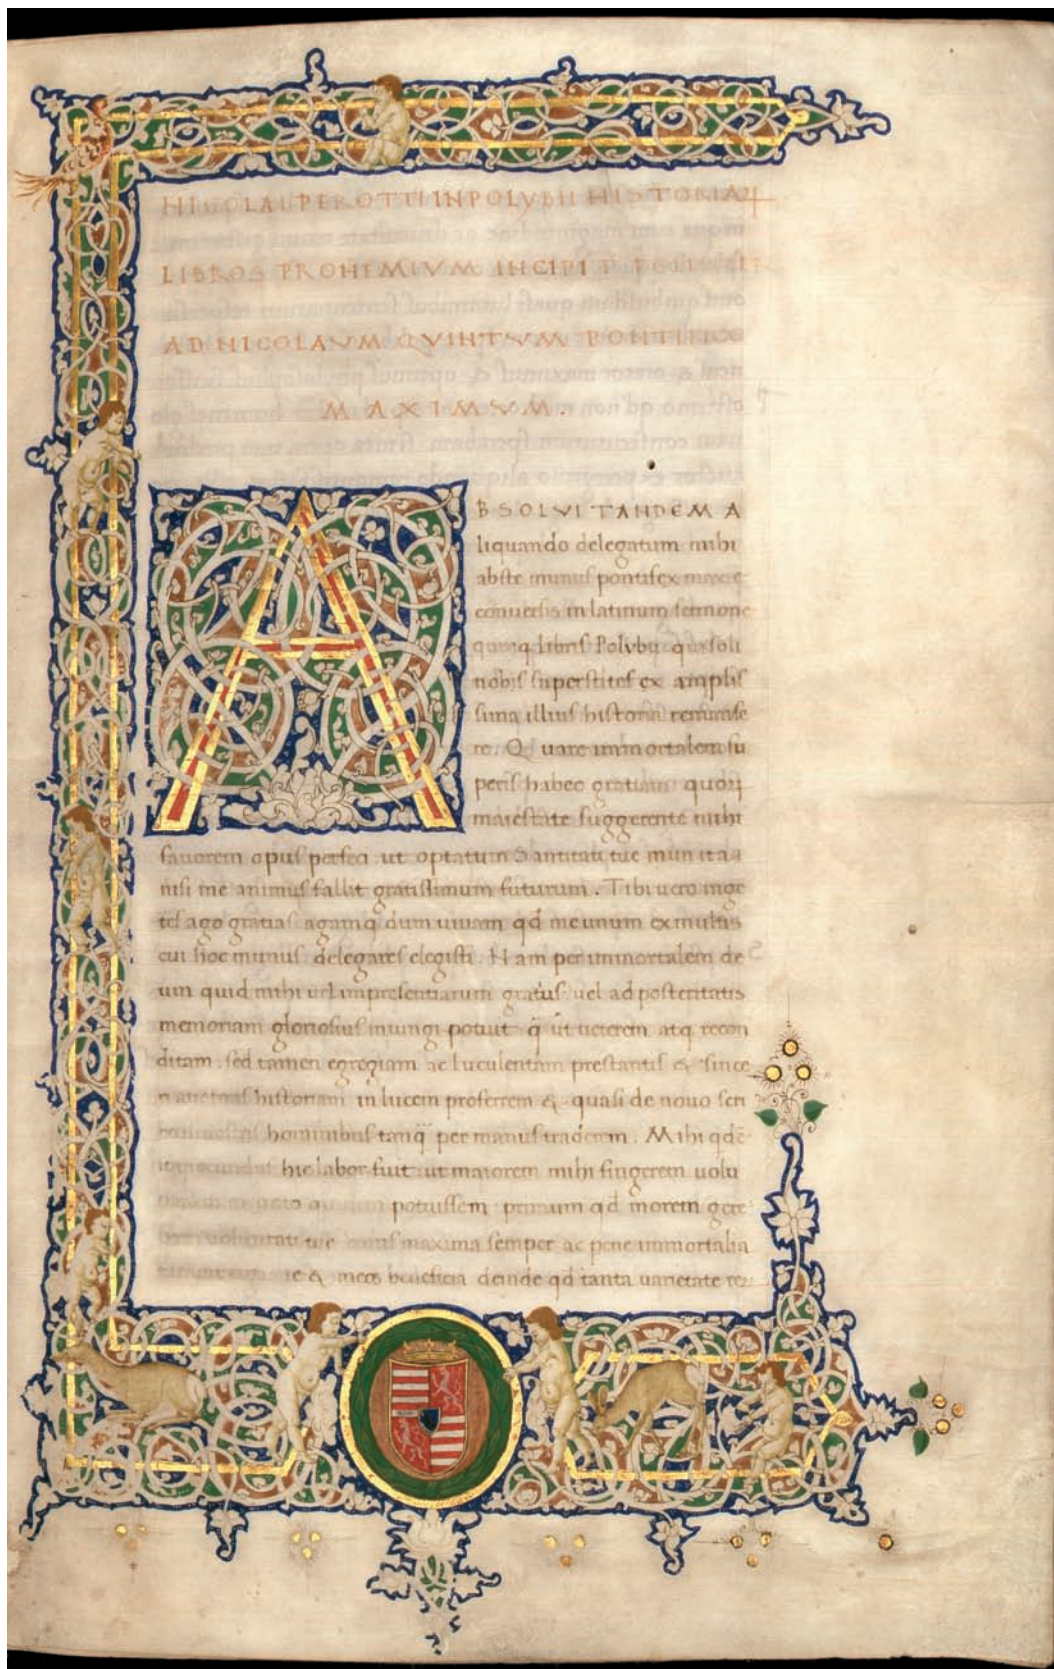 NICOLAI PEROTTI IN POLYBII HISTORIAꝜ
LIBROS PROHEMIVM INCIPIT FELICITER
AD NICOLAVM QVINTVM PONTIFICE
MAXIMVM.
ABSOLVI TANDEM A
liquando delegatum mihi
abste munus pontifex maxie
conuersis in latinum sermone
quinq libris Polybii qui soli
nobis superstites ex amplis
sima illius historia remanse
re. Quare immortalem su
peris habeo gratiam quoꝝ
maiestate suggerente mihi
fauorem opus perfeci ut optatum Santitati tue mun ita a
nisi me animus fallit gratissimum futurum. Tibi uero inge
tes ago gratias agamq dum uiuam qd me unum ex multis
cui hoc munus delegares elegisti. Nam per immortalem de
um quid mihi uel impresentiarum gratius uel ad posteritatis
memoriam gloriosius iniungi potuit q̄ ut ueterem atq recon
ditam. sed tamen egregiam ac luculentam prestantis & since
historiam in lucem proferrem & quasi de nouo scri
hominibus tanq̄ per manus traderem. Mihi qdē
hic labor fuit ut maiorem mihi fingerem uolu
potuissem primum qd morem gere
tue cuius maxima semper ac pene immortalia
& meos beneficia deinde qd tanta uarietate rer